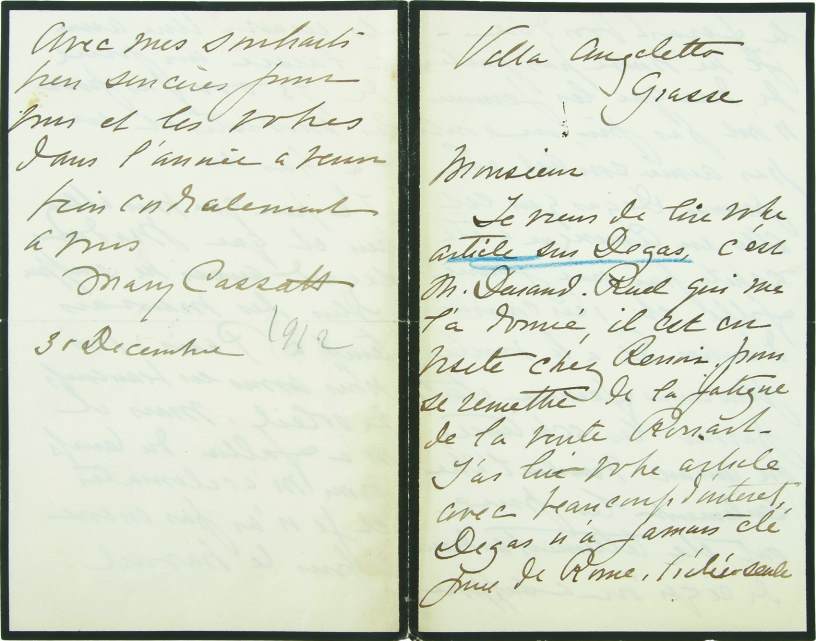 Villa Angeletto
Grasse
Monsieur
Je viens de lire votre
article sur Degas, c'est
M. Durand. Ruel qui me
l'a donné, il est en
visite chez Renoir, pour
se remettre de la fatigue
de la vente Rouart-
J'ai lu votre article
avec beaucoup d'interet,
Degas n'a jamais été
de Rome, l'idée seule
Avec mes souhaits
bien sincères pour
vous et les votres
dans l'année a venir
bien cordialement
a vous
Mary Cassatt
31 Decembre 1912